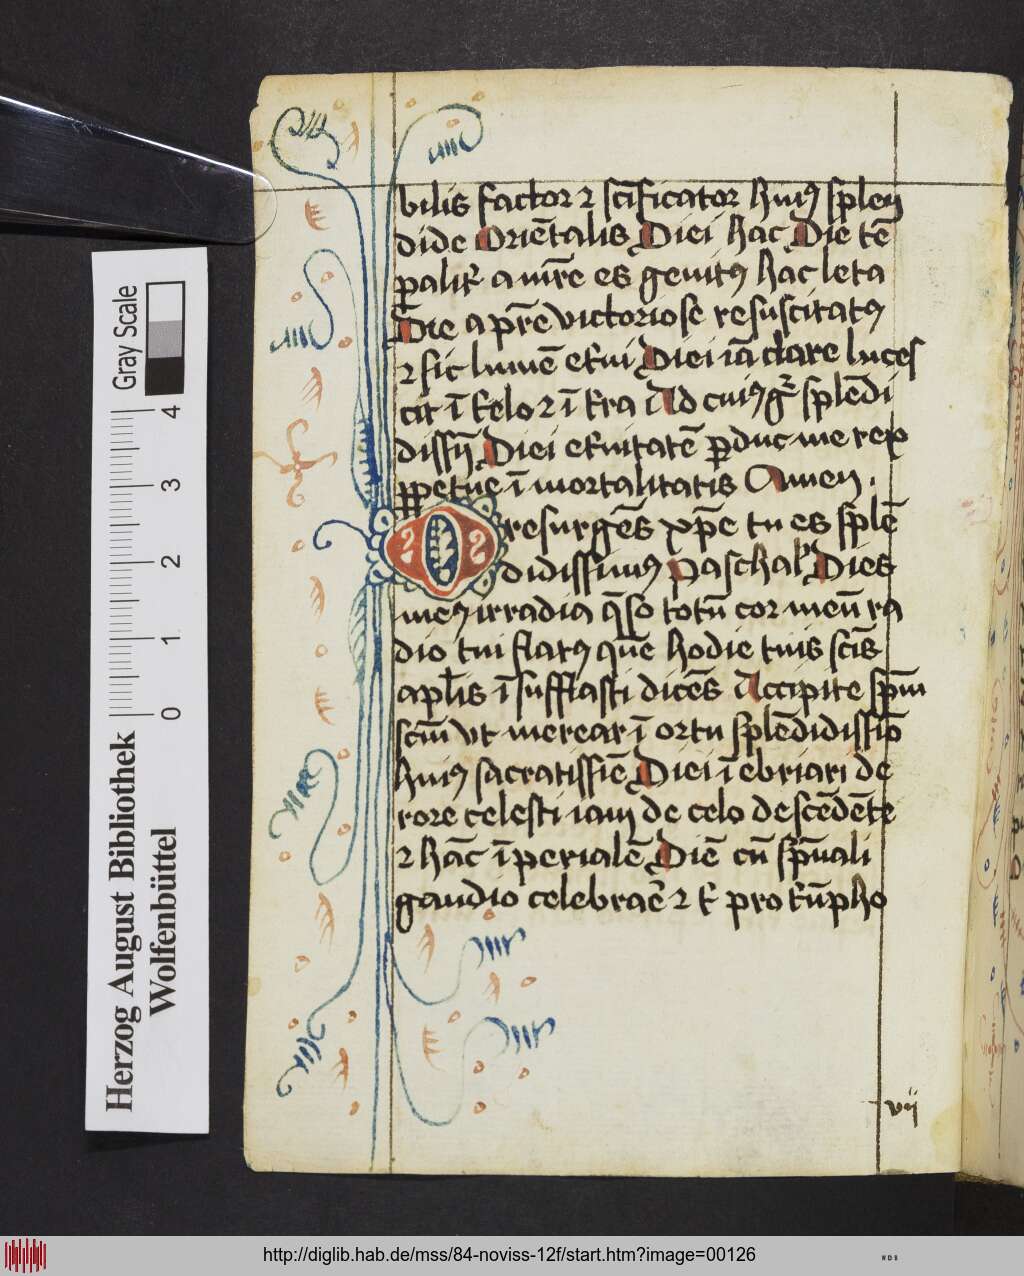 bilis factor ⁊ sc̄ificator huiꝰ splen
dide Oriētalis Diei hac Die tē
ꝑalit̕ a mr̄e es genitꝰ hac leta
Die a pr̄e victoriose resuscitatꝰ
⁊ sic lumē et̕ni Diei iā clare luces
cit ī celo ⁊ ī t̕ra Ad cuiꝰ splēdi
dissi Diei et̕nitatē ꝑduc me rex
ꝑpetue īmortalitatis Amen.
O resurgēs xp̄e tu es splē
didissimꝰ paschal' Dies
meꝰ irradia q̄so totū cor meū ra
dio tui flatꝰ quē hodie tuis sc̄is
apl'is īsufflasti dicēs Accipite sp̄m
sc̄m vt merear ī ortu splēdidissīo
huiꝰ sacratissīe Diei īebriari de
rore celesti iam de celo descēdēte
⁊ hāc īperialē Diē cū sp̄uali
gaudio celebrare ⁊ t̕ pro t̕umpho
vij
Herzog August Bibliothek
Wolfenbüttel
0 1 2 3 4
Gray Scale
http://diglib.hab.de/mss/84-noviss-12f/start.htm?image=00126
WDB